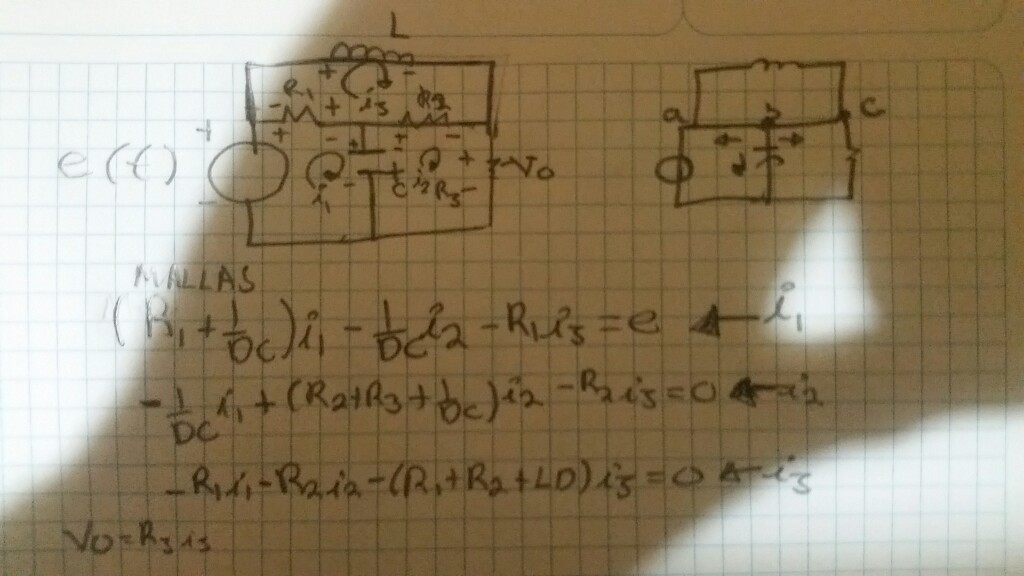 L
+ -
R1 + i3 R2
- +
+ - + ± -
e(t) i1 - + C i2 R3 + - Vo
-
a b C
MALLAS
(R1 + 1/DC)i1 - 1/DC i2 - R1i3 = e ← i1
- 1/DC i1 + (R2+R3+1/DC)i2 - R2i3 = 0 ← i2
- R1i1 - R2i2 - (R1+R2+LD)i3 = 0 ← i3
Vo = R3i3